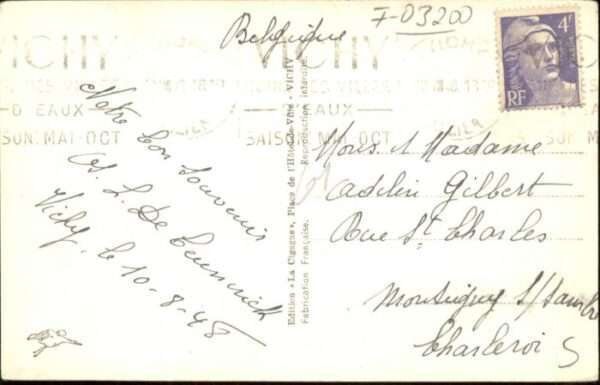 Belgique
F-03200
4F
RF
VICHY
VICHY
D'EAUX
D'EAUX
SON MAI-OCT
SAISON MAI-OCT
SON MAI-OCT
Notre bon souvenir
L. De
Vichy. le 10-8-48
Edition « La Cigogne », Place de l'Hôtel-de-Ville - VICHY
Fabrication Française. Reproduction interdite.
Mons. et Madame
Adelin Gilbert
Rue St Charles
Montigny s/Sambre
Charleroi